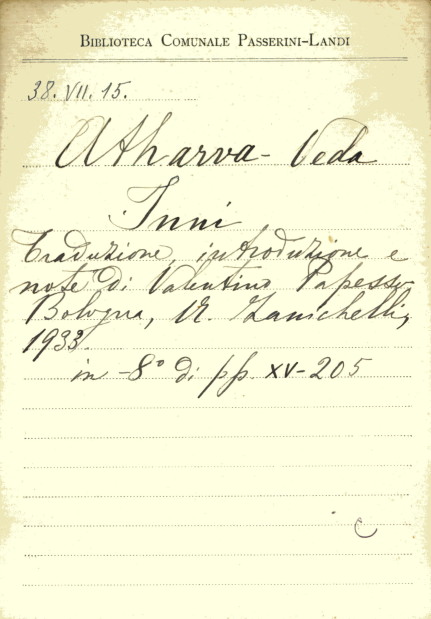 BIBLIOTECA COMUNALE PASSERINI-LANDI
38. VII. 15.
Atharva-Veda
Inni
Traduzione, introduzione e
note di Valentino Papesso
Bologna, N. Zanichelli,
1933.
in-8° di pp. XV-205
C